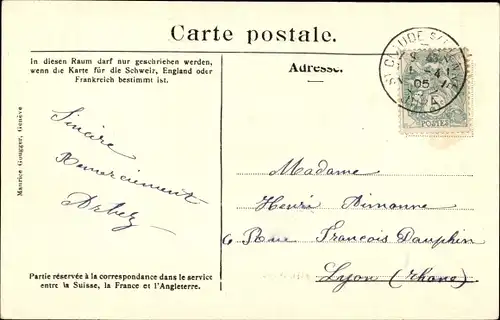 Carte postale.
In diesen Raum darf nur geschrieben werden,
wenn die Karte für die Schweiz, England oder
Frankreich bestimmt ist.
Adresse.
ST CLAUDE
05
POSTES
Maurice Gougger, Genève
Sincère
Remerciement
Arbez
Madame
Henri
6 Rue François Dauphin
Lyon (Rhone)
Partie réservée à la correspondance dans le service
entre la Suisse, la France et l'Angleterre.